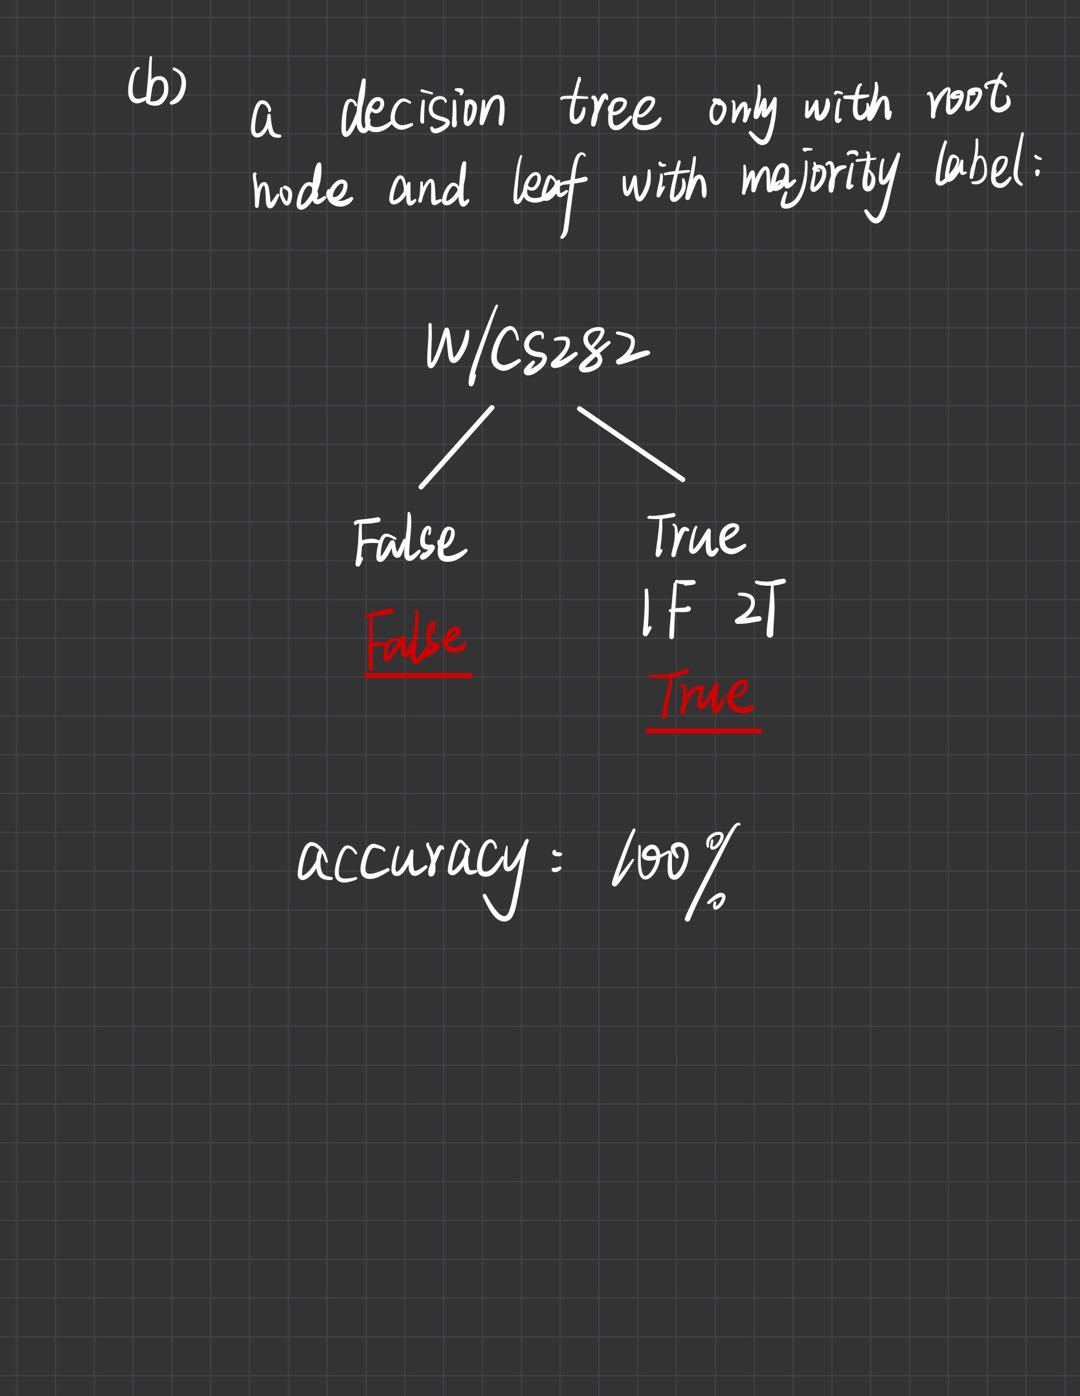 (b) a decision tree only with root
node and leaf with majority label:
W/CS282
False True
1F 2T
False
True
accuracy: 100%